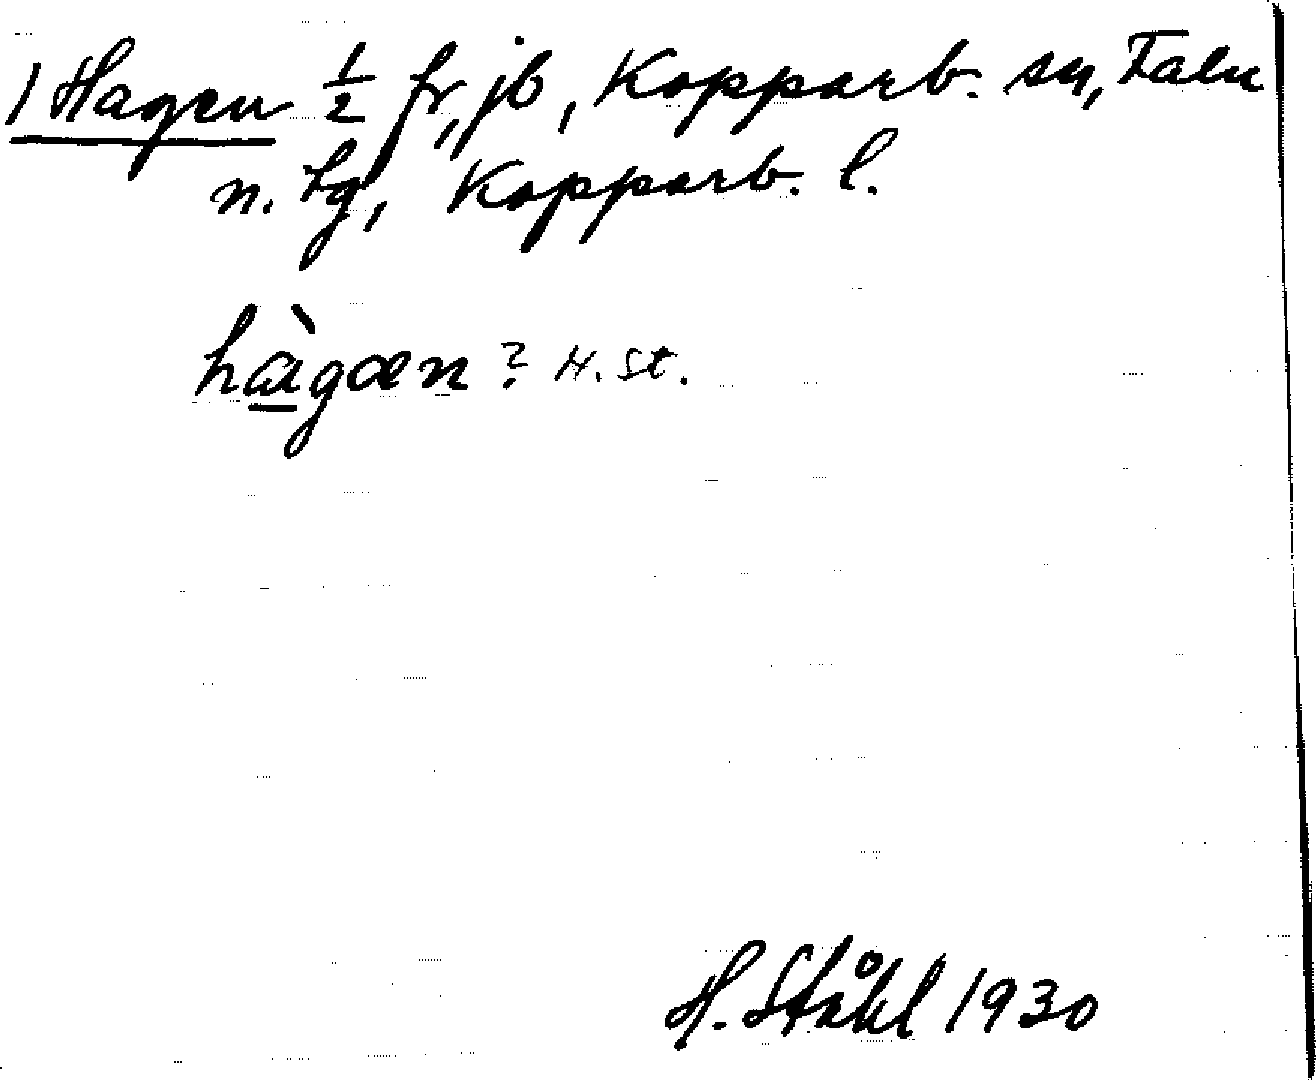 1 Hagen 1/2 fr, jb, Kopparb. sn, Falu
n. tg, Kopparb. l.
hàgæn? H. St.
H. Ståhl 1930